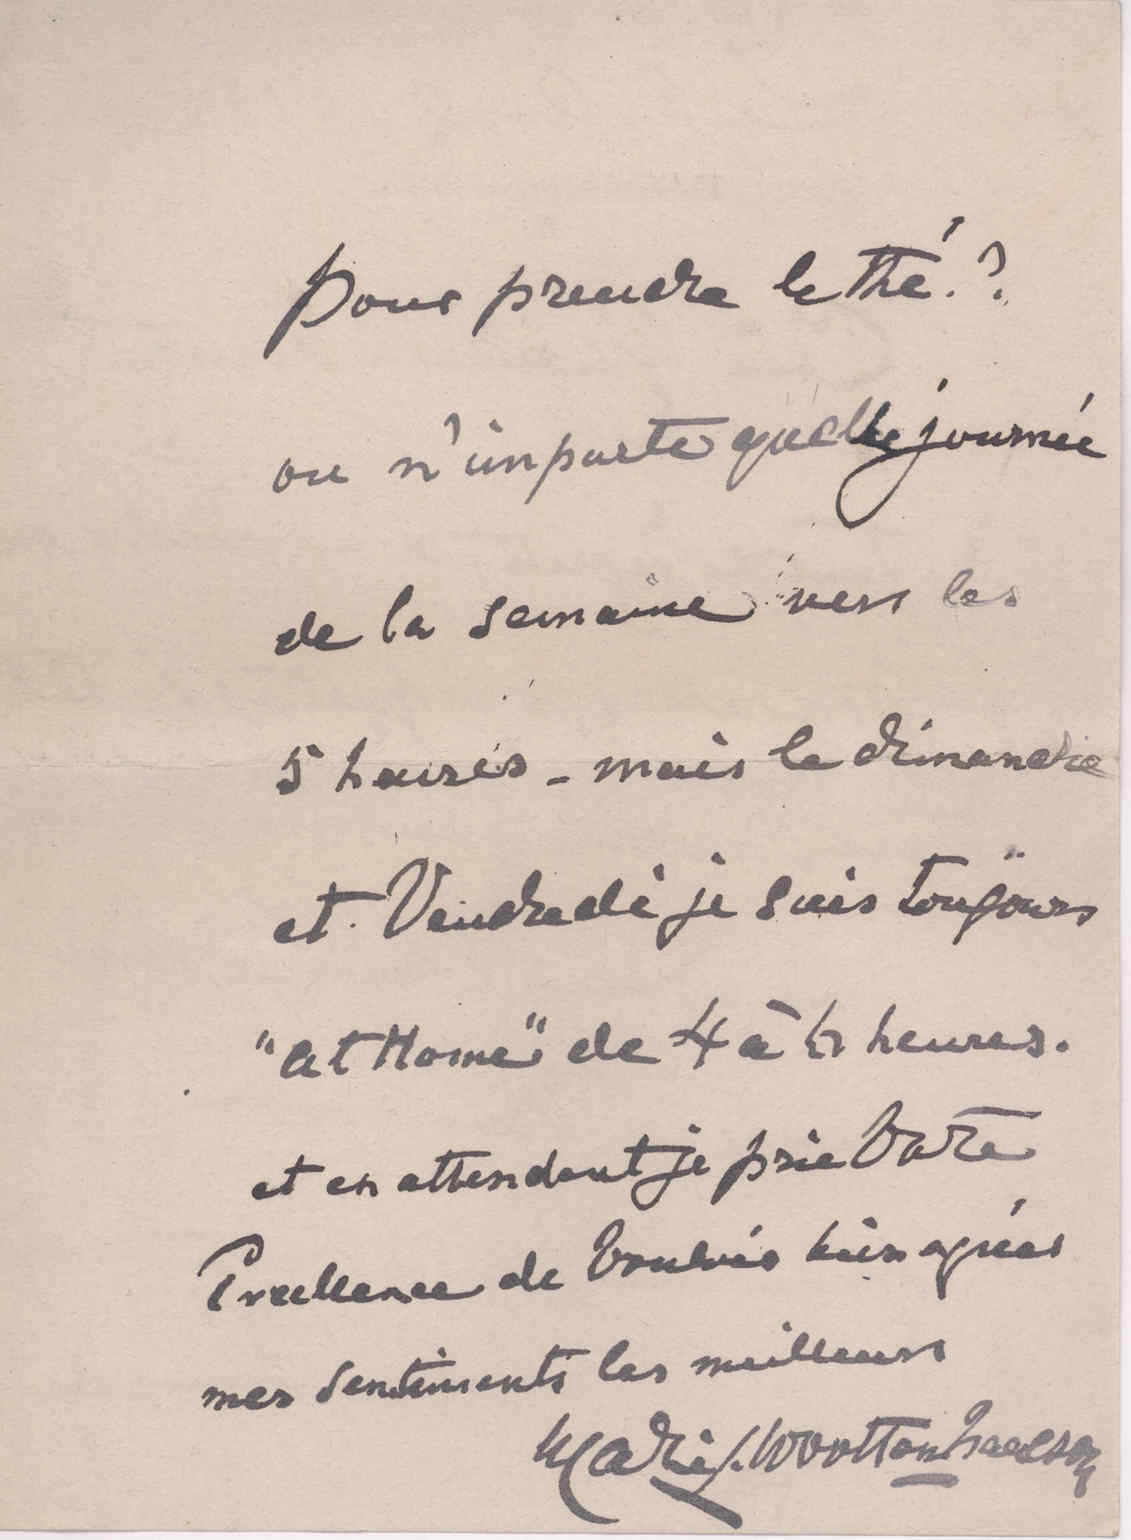 Pour prendre le thé.?
ou n'importe quelle journée
de la semaine vers les
5 heures - mais le dimanche
et Vendredi je suis toujours
"at Home" de 4 à 7 heures.
et en attendant je prie Votre
Excellence de vouloir bien agréer
mes sentiments les meilleurs
Marie Wootton